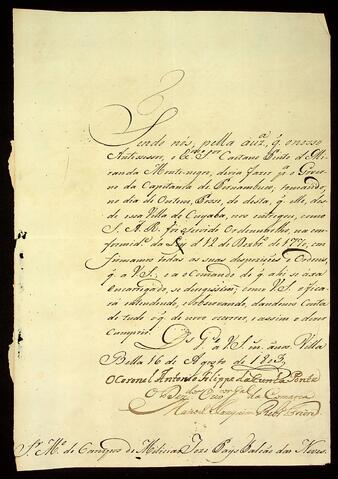 Sendo nós, pella auz.ª q. o nosso
Antissesor, o Ex.mo Sr. Caetano Pinto de Mi-
randa Montenegro, devia fazer p.ª o Gover-
no da Capitania de Pernambuco, tomando,
no dia de Ontem, Posse, do desta, q. elle, des-
de essa Villa do Cuyabá, nos entregou, como
S. A. R. foi servido Ordenar lhe, na con-
formid.e da Ley de 12 de Dezbr.º de 1770, con-
firmamos todas as suas disposições e Ordens,
q. a VS., e a o Comando de q. ahi se axa
encarregado, se dirigissem; como VS. o fica-
rá entendendo, observando, dandonos Conta
de tudo o q. de novo ocorrer, e assim o deve
cumprir.
D.s G.e a VS. m. anos. Villa
Bella 16 de Agosto de 1803
O Coronel Antonio Filippe da Cunha Ponte
O Dez.or Ouv.or da Comarca
Manoel Joaquim
S.r M.e de Campo de Milicias Joze Paes Falcão das Neves.